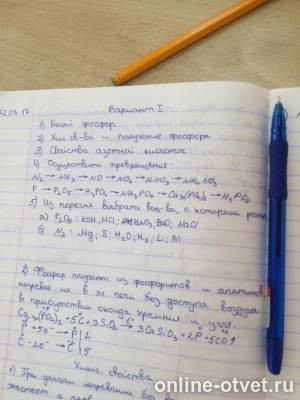 22.03.17 Вариант I
1) Белый фосфор
2) Хим св-ва и получение фосфора
3) Свойства азотной кислоты
4) Осуществить превращения:
N₂ → NH₃ → NO → NO₂ → HNO₃ → NH₄NO₃
P → P₂O₅ → H₃PO₄ → Na₃PO₄ → Ca₃(PO₄)₂ → H₃PO₄
5) Из перечня выбрать вещ-ва, с которыми реаг.
а) P₂O₅: KOH, HCl, HNO₃, BaO, NaCl
б) N₂: Mg, S, H₂O, H₂, Li, Al
2) Фосфор получают из фосфоритов и апатитов,
нагревая их в эл печи без доступа воздуха
в присутствии оксида кремния и угля.
Ca₃(PO₄)₂ + 5C + 3SiO₂ → 3CaSiO₃ + 2P + 5CO↑
P +5e → P | 2
C -2e → C | 5
Химич. свойства
1) При нагревании
online-otvet.ru